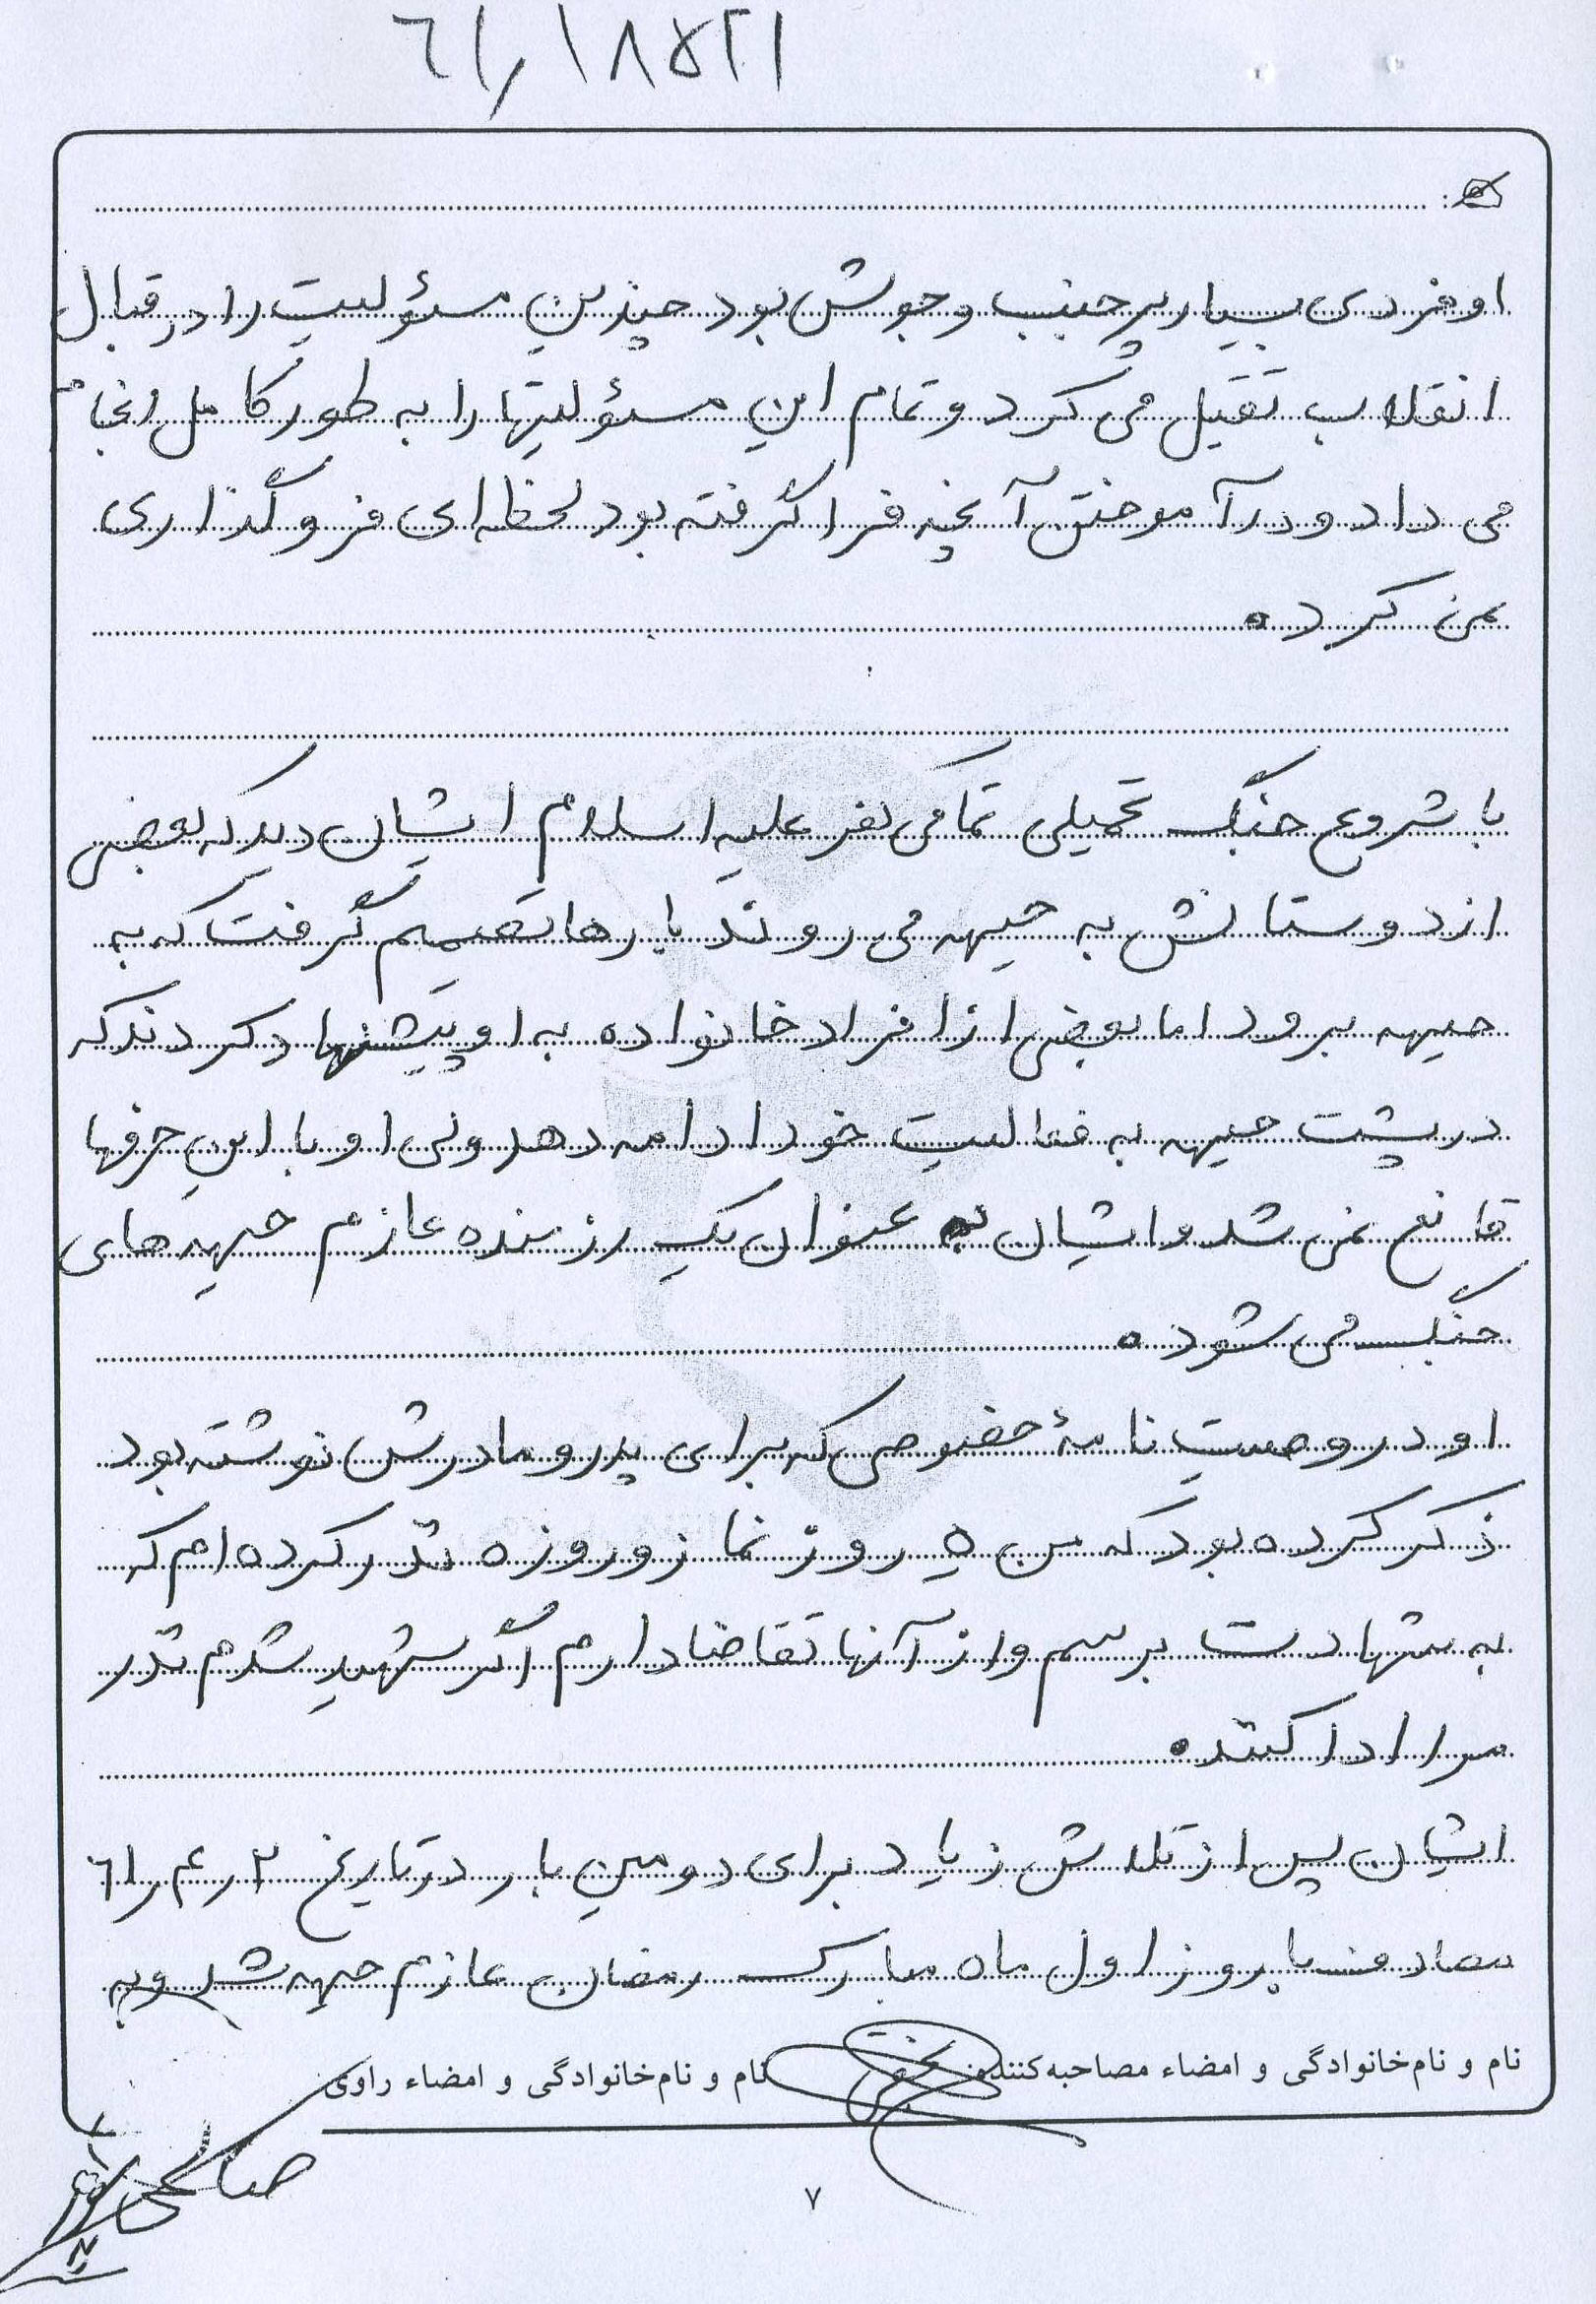 ٦١٫١٨٥٢١
او فردی بسیار پر جنب و جوش بود چندین مسئولیت را در قبال
انقلاب تقبل می کرد و تمام این مسئولیتها را به طور کامل انجام
می داد و در آموختن آنچه فرا گرفته بود لحظه ای فروگذاری
نمی کرد.
با شروع جنگ تحمیلی تمامی کفر علیه اسلام ایشان دید که بعضی
از دوستانش به جبهه می روند بارها تصمیم گرفت که به
جبهه برود اما بعضی از افراد خانواده به او پیشنهاد کردند که
در پشت جبهه به فعالیت خود ادامه دهد ولی او با این حرفها
قانع نمی شد و ایشان به عنوان یک رزمنده عازم جبهه های
جنگ می شود.
او در وصیت نامهٔ خصوصی که برای پدر و مادرش نوشته بود
ذکر کرده بود که من ۵ روز نماز و روزه نذر کرده ام که
به شهادت برسم و از آنها تقاضا دارم اگر شهید شدم نذر
مرا ادا کنند.
ایشان پس از تلاش زیاد برای دومین بار در تاریخ ٢ر۴ر٦١
مصادف با روز اول ماه مبارک رمضان عازم جبهه شد و به
نام و نام‌خانوادگی و امضاء مصاحبه‌کننده: نام و نام‌خانوادگی و امضاء راوی
صالحی
٧